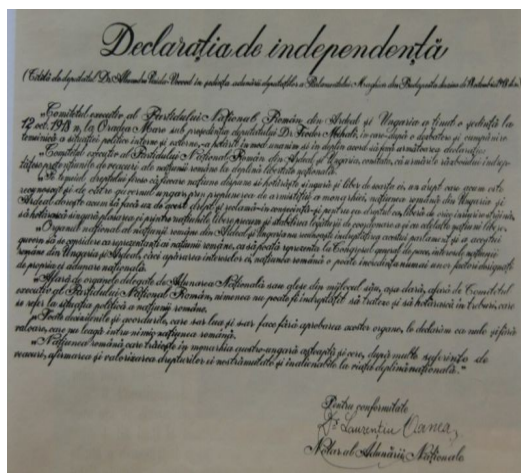 Declarația de independență
(Citită de deputatul Dr. Alexandru Vaida-Voevod în ședința adunării deputaților a Parlamentului Maghiar din Budapesta
„Comitetul executiv al Partidului Național Român din Ardeal și Ungaria a ținut o ședință la
12 oct. 1918 n. la Oradea Mare sub președinția deputatului Dr. Teodor Mihali, în care după o desbatere și cumpănire
temeinică a situației politice interne și externe, a hotărît în mod unanim și în deplin acord să facă următoarea declarație:
„Comitetul executiv al Partidului Național Român din Ardeal și Ungaria, constată, că urmările răsboiului îndrep-
tățesc pretențiunile de veacuri ale națiunii române la deplină libertate națională.
„Pe temeiul dreptului firesc că fiecare națiune dispune și hotărește singură și liber de soarta ei, un drept care acum este
recunoscut și de către guvernul ungar prin propunerea de armistițiu a monarhiei, națiunea română din Ungaria și
Ardeal dorește acum să facă uz de acest drept și reclamă în consecință și pentru ea dreptul ca, liberă de orice înrîurire străină,
să hotărască singură plasarea ei printre națiunile libere, precum și stabilirea legăturii de coordonare a ei cu celelalte națiuni libere.
„Organul național al națiunii române din Ardeal și Ungaria nu recunoaște îndreptățirea acestui parlament și a acestui
guvern să se considere ca reprezentanți ai națiunii române, ca să poată reprezenta la Congresul general de pace, interesele națiunii
române din Ungaria și Ardeal, căci apărarea intereselor ei, națiunea română o poate încredința numai unor factori designați
de propria ei adunare națională.
„Afară de organele delegate de Adunarea Națională sau alese din mijlocul său, așa dară, afară de Comitetul
executiv al Partidului Național Român, nimenea nu poate fi îndreptățit să trateze și să hotărască în treburi, care
se refer la situația politică a națiunii române.
„Toate deciziunile și acordurile, care s'ar lua și s'ar face fără aprobarea acestor organe, le declarăm ca nule și fără
valoare, care nu leagă întru nimic națiunea română.
„Națiunea română care trăește în monarhia austro-ungară așteaptă și cere, după multe suferințe de
veacuri, afirmarea și valorizarea drepturilor ei nestrămutate și inalienabile la viața deplină națională."
Pentru conformitate
Dr Laurențiu Oanea,
Notar al Adunării Naționale